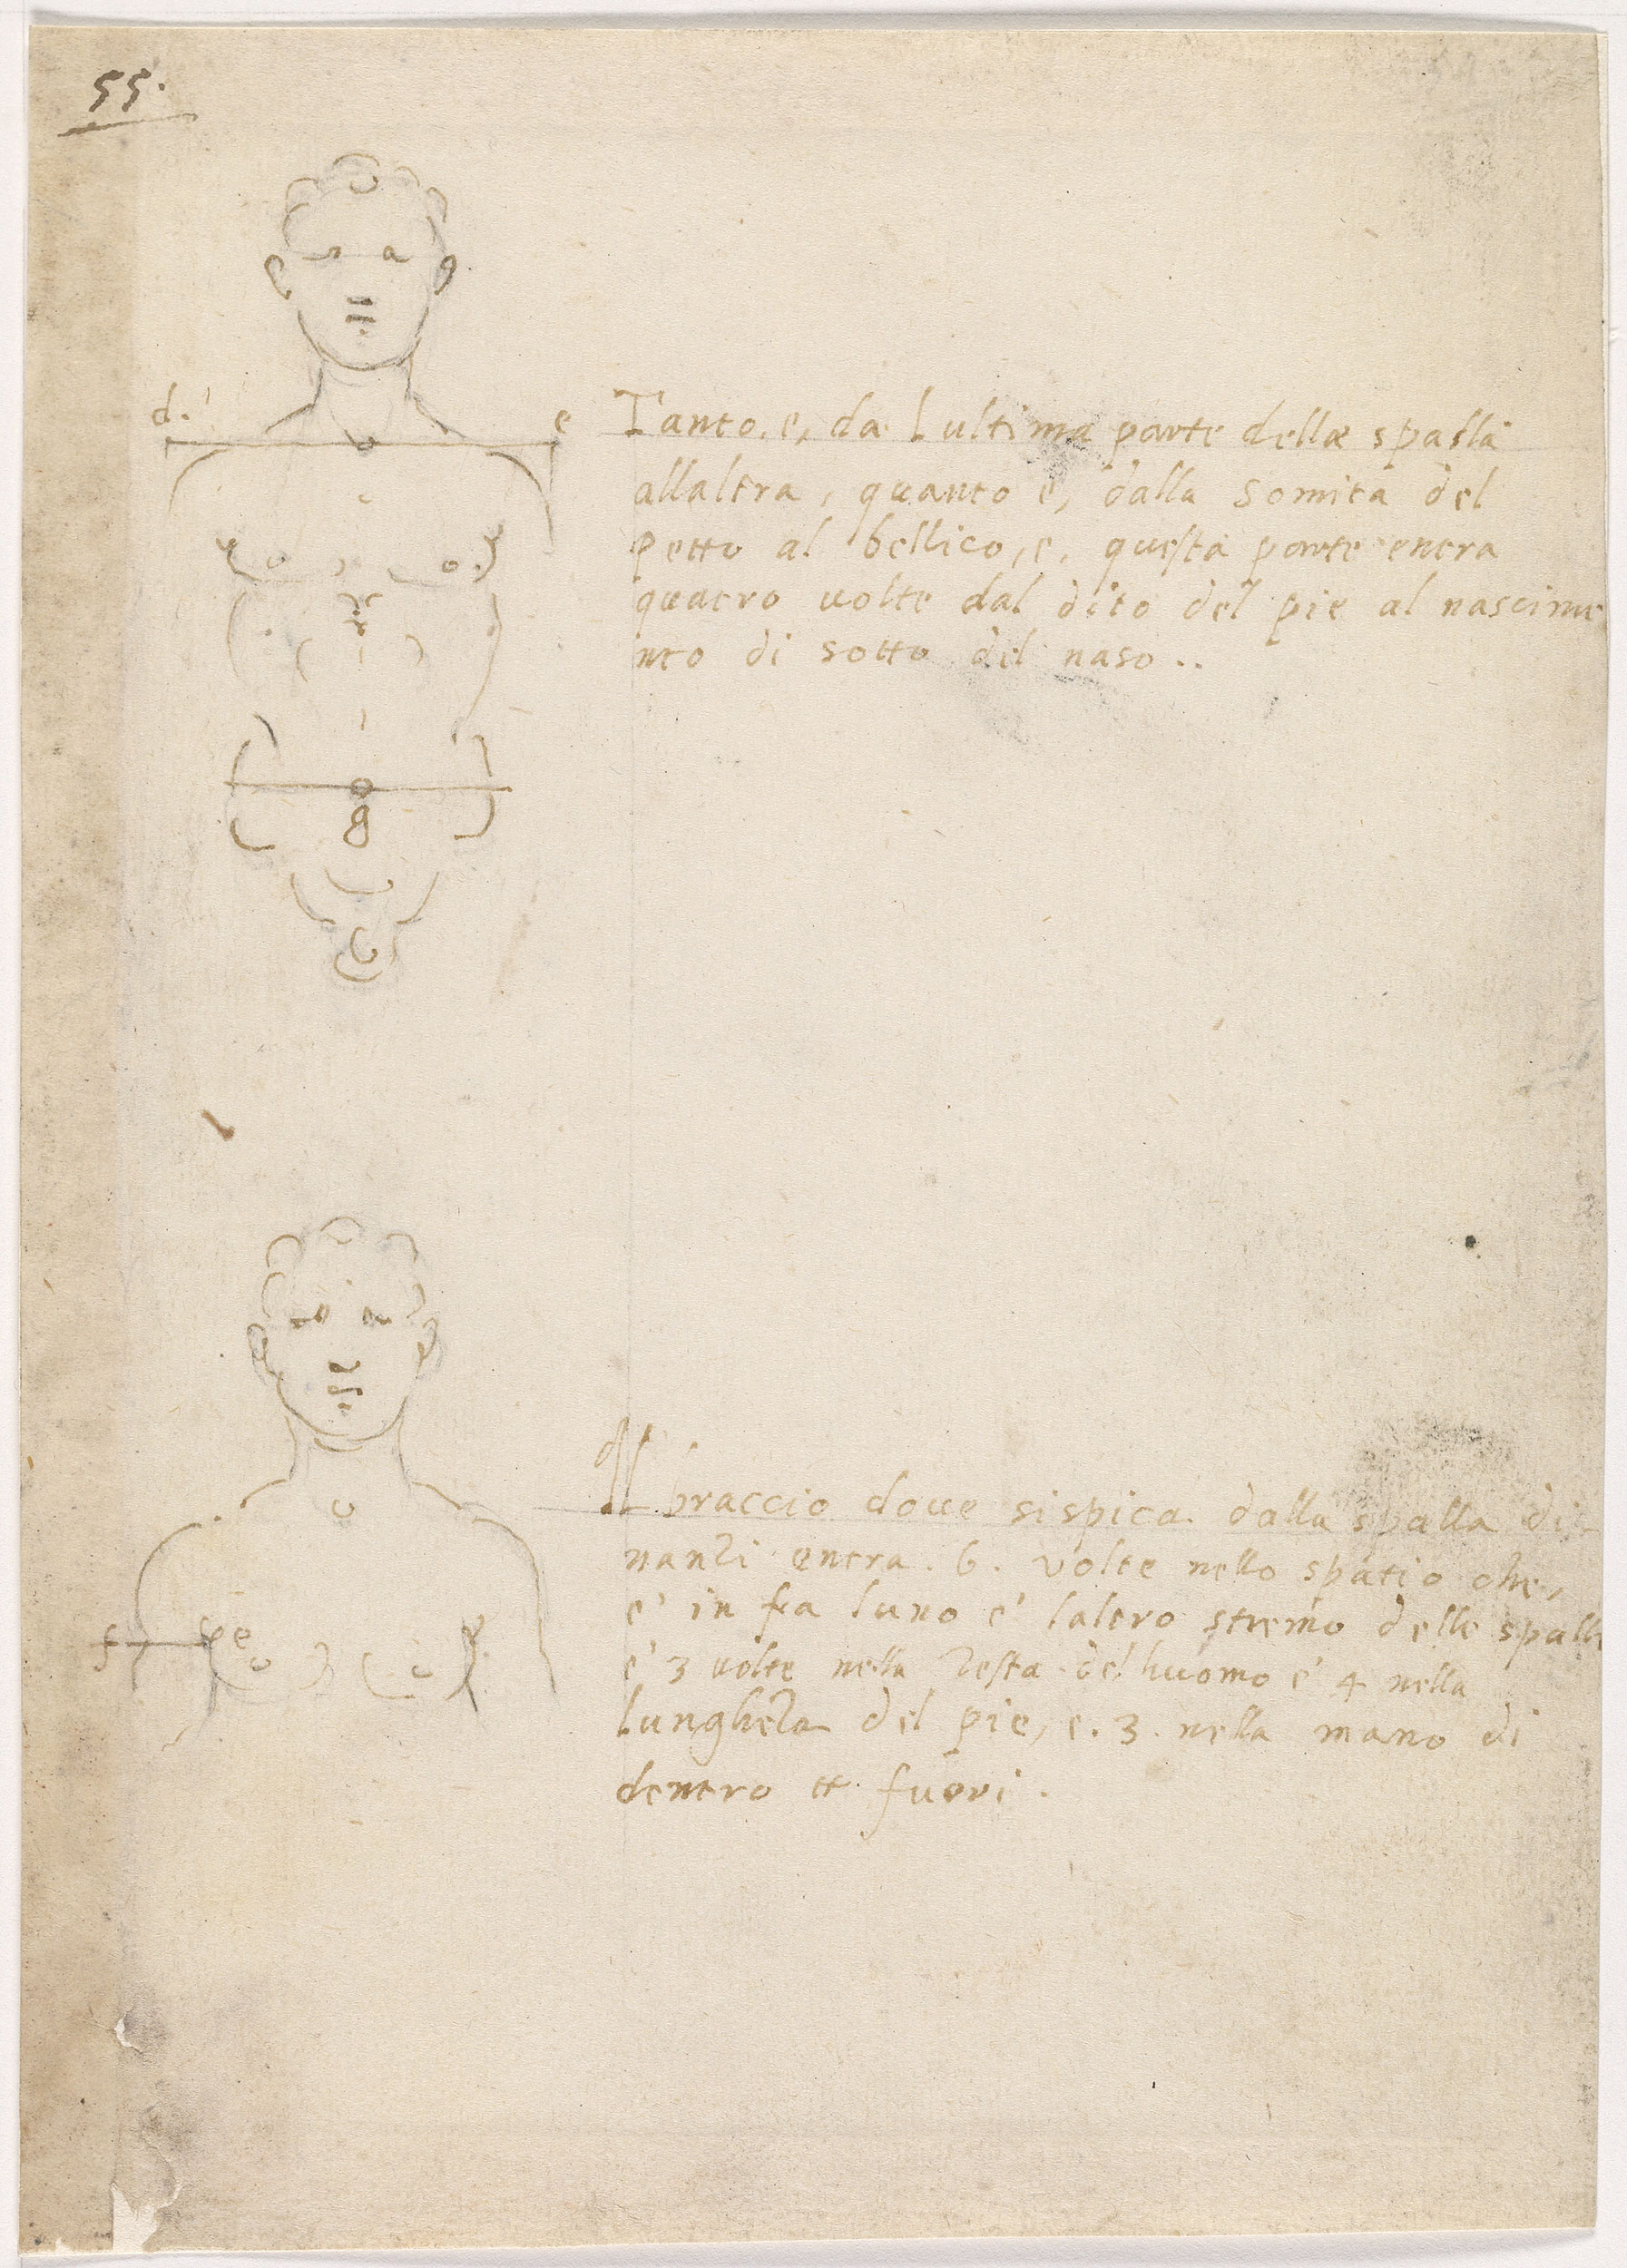 55.
d.
e
Tanto, e, da lultima parte della spalla
allaltra, quanto e, dalla somita del
petto al bellico, e, questa parte entra
quatro uolte dal dito del pie al nascime
nto di sotto del naso..
g
Il braccio doue sispica dalla spalla di-
nanzi entra .6. volte nello spatio che,
e' in fra luno e' laltro stremo delle spalle
e' 3 uolte nella testa del huomo e' 4 nella
lungheza del pie, e. 3. nella mano di
f
e
dentro et fuori.